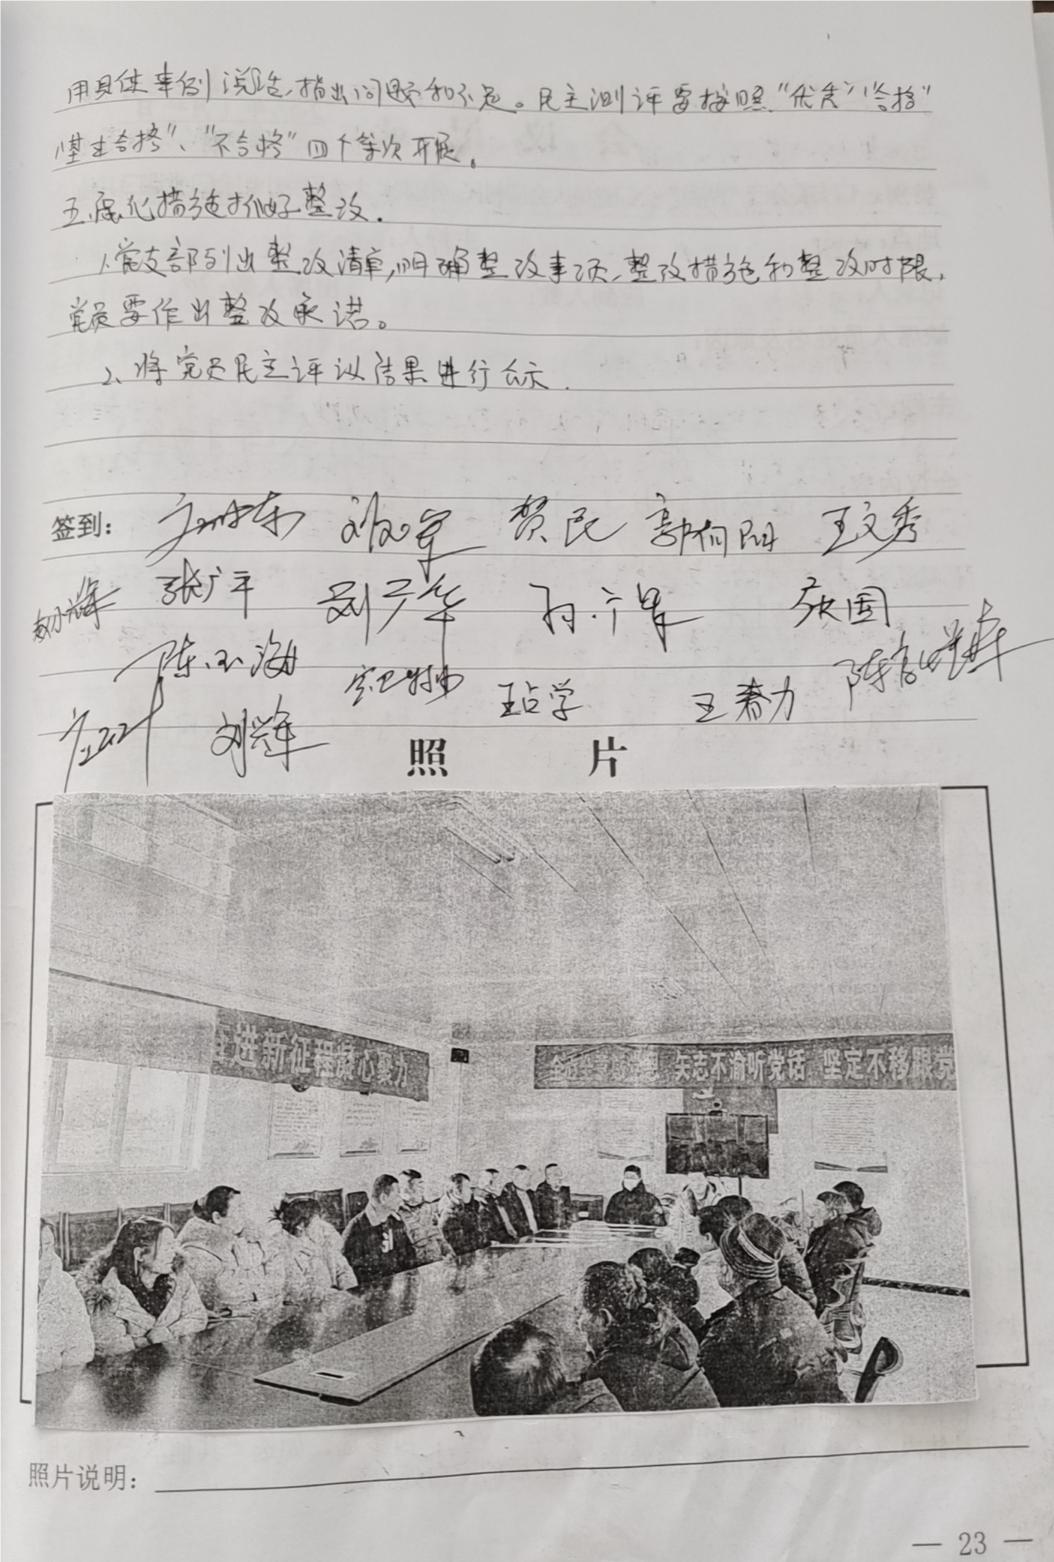 用具体事例说话,指出问题和不足。民主测评要按照"优秀""合格"
"基本合格"、"不合格"四个等次开展。
五.强化措施抓好整改.
1、党支部列出整改清单,明确整改事项、整改措施和整改时限,
党员要作出整改承诺。
2、将党员民主评议结果进行公示.
签到: 贺民 郭向阳 王文秀
张广平 刘广华
陈玉海 王占学 王春力
刘兴军
照 片
进新征程凝心聚力
矢志不渝听党话 坚定不移跟党
照片说明:
— 23 —